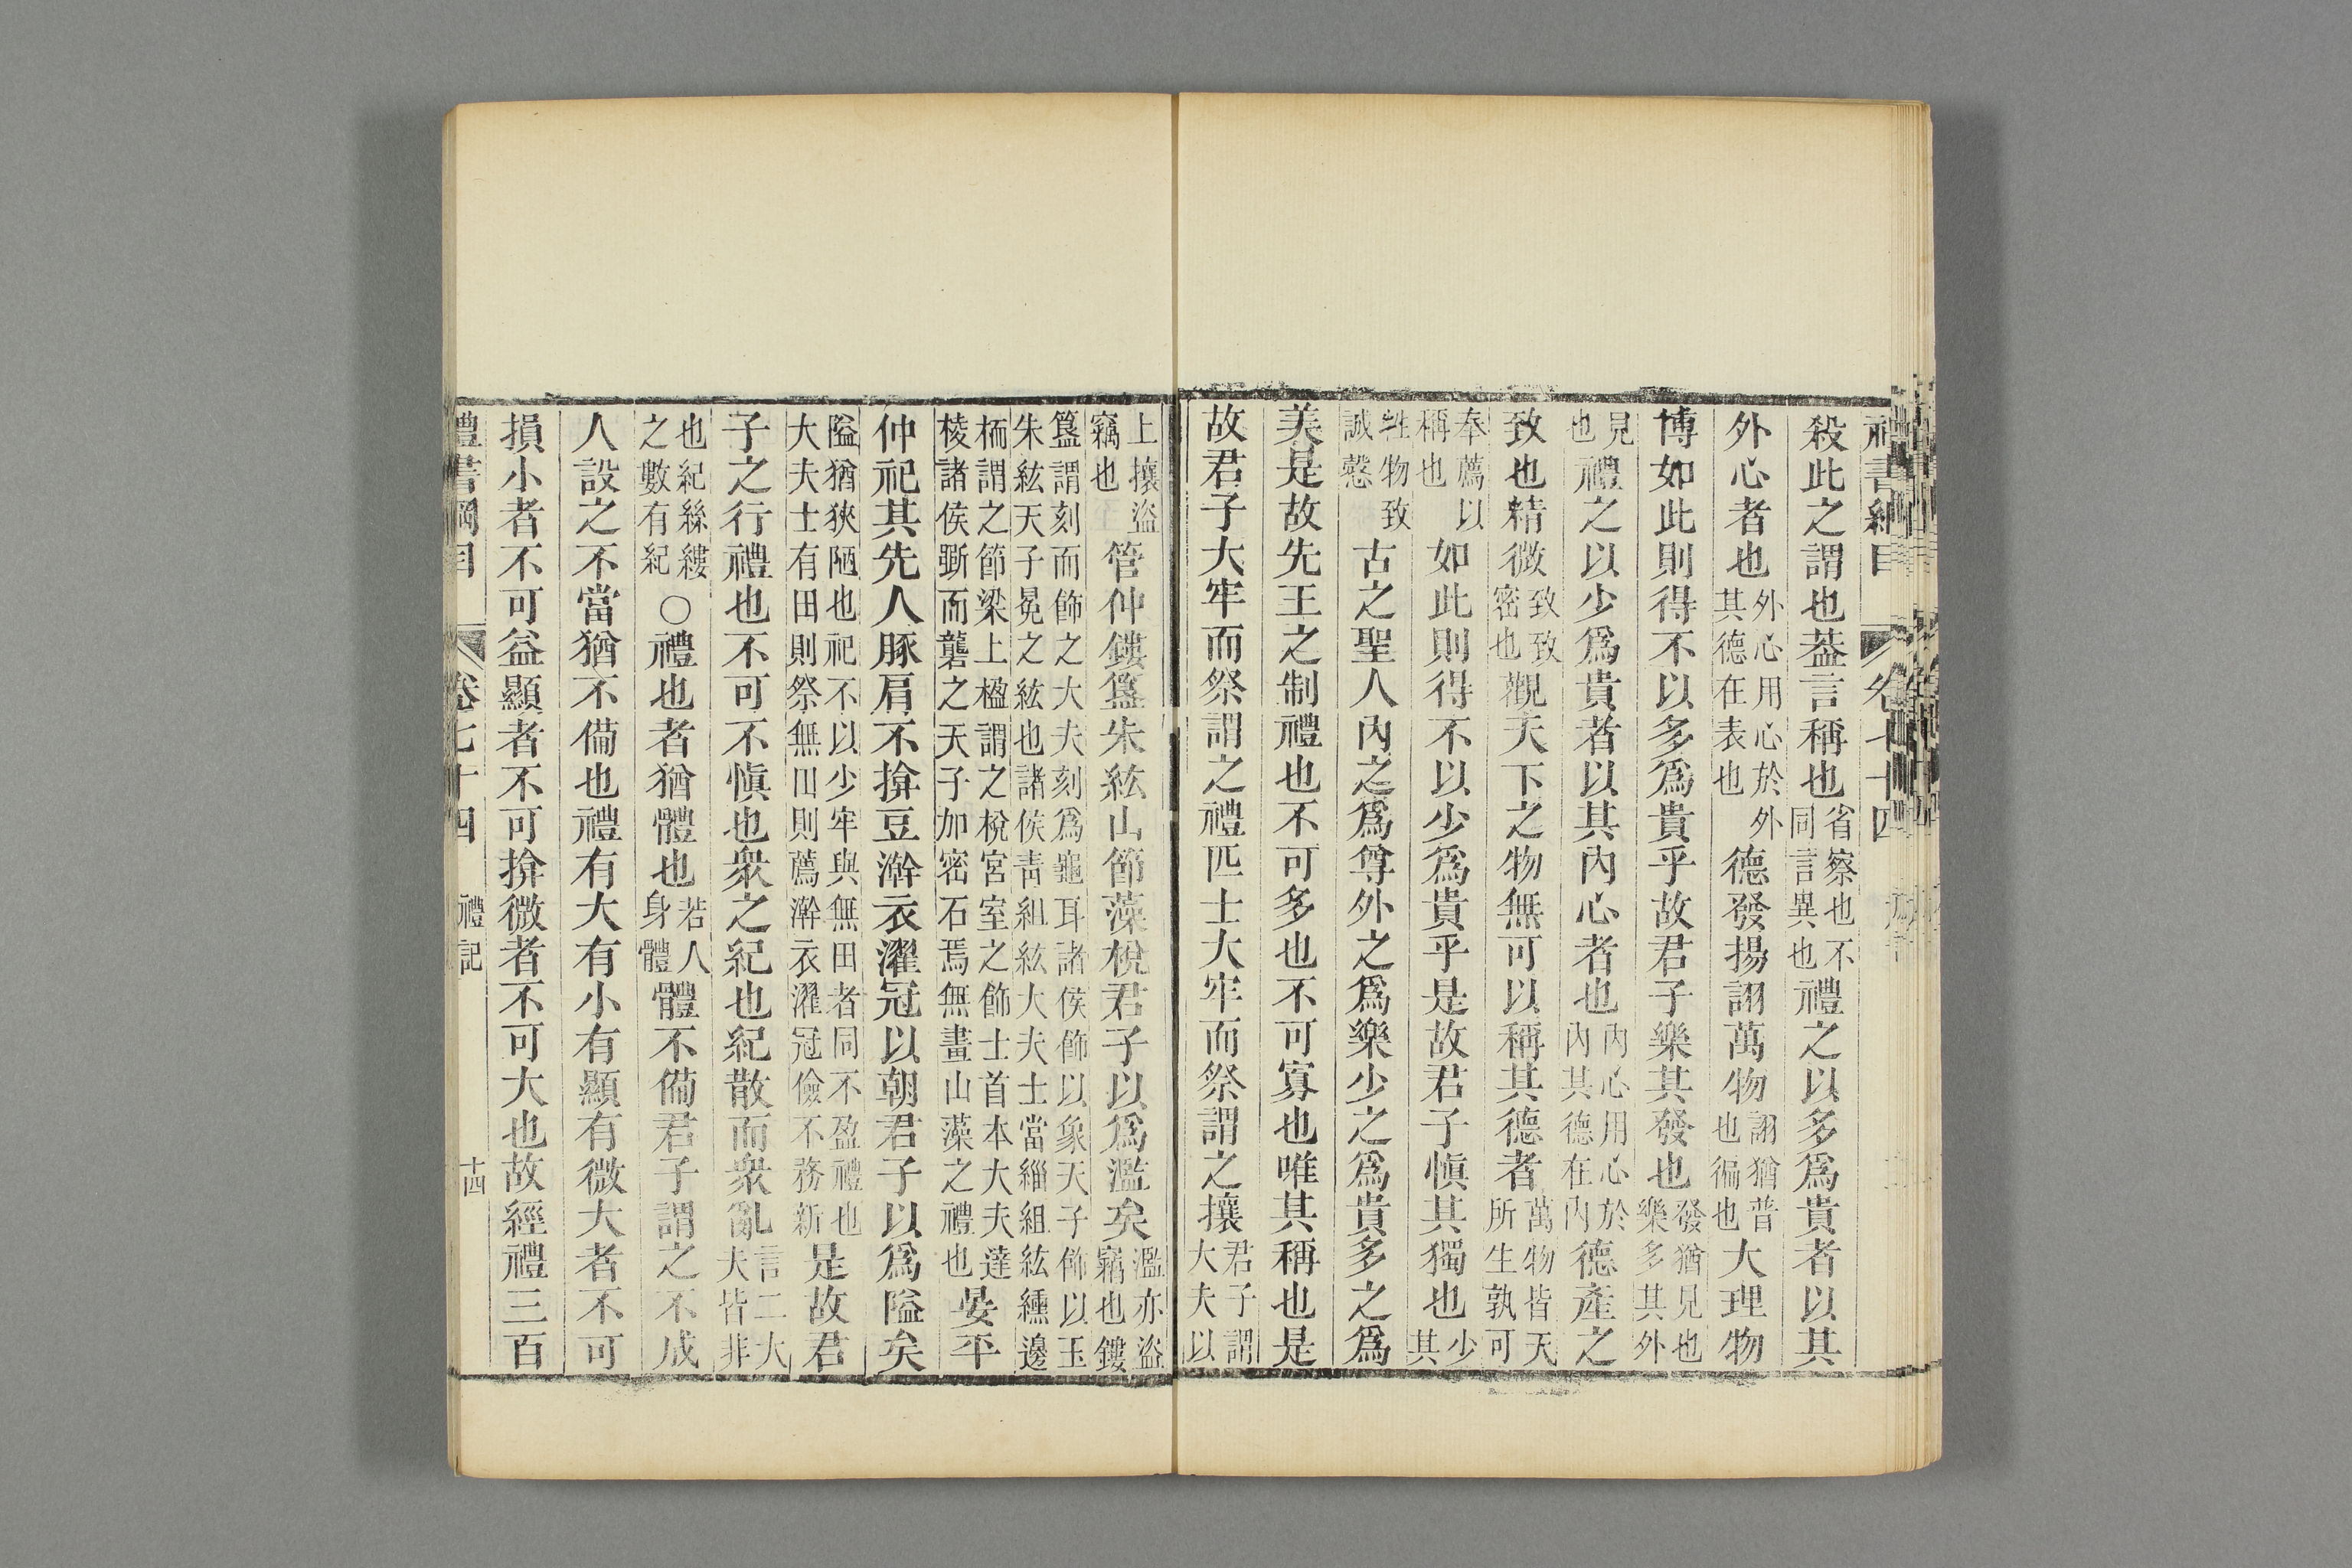 殺此之謂也葢言稱也省察也不同言異也禮之以多爲貴者以其
外心者也外心用心於外其德在表也德發揚詡萬物詡猶普也徧也大理物
博如此則得不以多爲貴乎故君子樂其發也發猶見也樂多其外
見也禮之以少爲貴者以其內心者也內心用心於內其德在內德產之
致也精微致致密也觀天下之物無可以稱其德者萬物皆天所生孰可
奉薦以稱也如此則得不以少爲貴乎是故君子愼其獨也少其
牲物致誠慤古之聖人內之爲尊外之爲樂少之爲貴多之爲
美是故先王之制禮也不可多也不可寡也唯其稱也是
故君子大牢而祭謂之禮匹士大牢而祭謂之攘君子謂大夫以
上攘盜竊也管仲鏤簋朱紘山節藻梲君子以爲濫矣濫亦盜竊也鏤
簋謂刻而飾之大夫刻爲龜耳諸侯飾以象天子飾以玉朱紘天子冕之紘也諸侯靑組紘大夫士當緇組紘纁邊
栭謂之節梁上楹謂之梲宮室之飾士首本大夫達棱諸侯斲而礱之天子加密石焉無畫山藻之禮也晏平
仲祀其先人豚肩不揜豆澣衣濯冠以朝君子以爲隘矣
隘猶狹陋也祀不以少牢與無田者同不盈禮也大夫士有田則祭無田則薦澣衣濯冠儉不務新是故君
子之行禮也不可不愼也衆之紀也紀散而衆亂言二大夫皆非
也紀絲縷之數有紀○禮也者猶體也若人身體體不備君子謂之不成
人設之不當猶不備也禮有大有小有顯有微大者不可
損小者不可益顯者不可揜微者不可大也故經禮三百
禮書綱目 卷七十四 禮記 十四